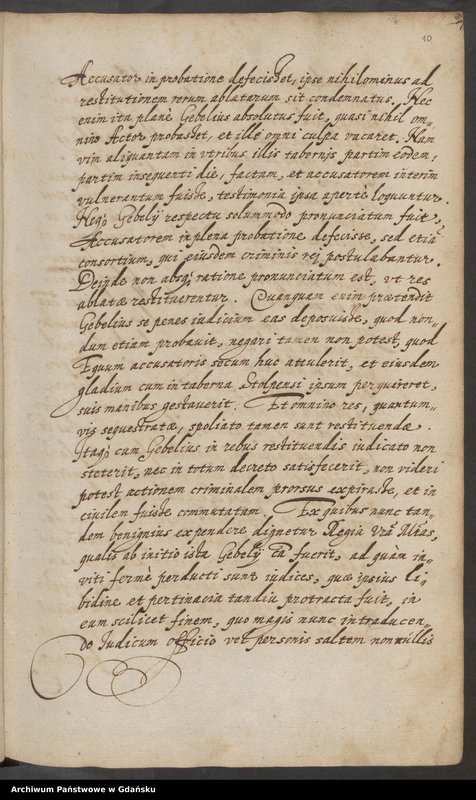 10
Accusator in probatione defecisset, ipse nihilominus ad
restitutionem rerum ablatarum sit condemnatus. Nec
enim ita planè Gebelius absolutus fuit, quasi nihil om„
nino Actor probasset, et ille omni culpa vacaret. Nam
vim aliquantam in vtribus illis tabernis partim eodem,
partim insequenti die, factam, et accusatorem interim
vulnerantum fuisse, testimonia ipsa apertè loquuntur.
Neq3 Gebelij respectu solummodo pronunciatum fuit,
Accusatorem in plena probatione defecisse, sed etiã
consortium, qui eiusdem criminis rei postulabantur.
Deinde non absq3 ratione pronunciatum est, vt res
ablatæ restituerentur. Quanquam enim prætendit
Gebelius se penes iudicium eas deposuisse, quod non„
dum etiam probauit, negari tamen non potest, quod
Equum accusatoris secum huc attulerit, et eiusdem
gladium cum in taberna Stolpensi ipsum perquireret,
suis manibus gestauerit. Et omnino res, quantum„
vis sequestratæ, spoliato tamen sunt restituendæ.
Itaq3 cum Gebelius in rebus restituendis iudicato non
steterit, nec in totum decreto satisfecerit, non videri
potest actionem criminalem prorsus expirasse, et in
ciuilem fuisse commutatam. Ex quibus nunc tan„
dem benignius expendere dignetur Regia Vrã Mtas,
qualis ab initio ista Gebelij cã fuerit, ad quam in„
viti fermè perducti sunt iudices, quæ ipsius li„
bidine et pertinacia tandiu protracta fuit, in
eum scilicet finem, quo magis nunc intraducen„
do Iudicum officio vel personis saltem nonnullis
Archiwum Państwowe w Gdańsku